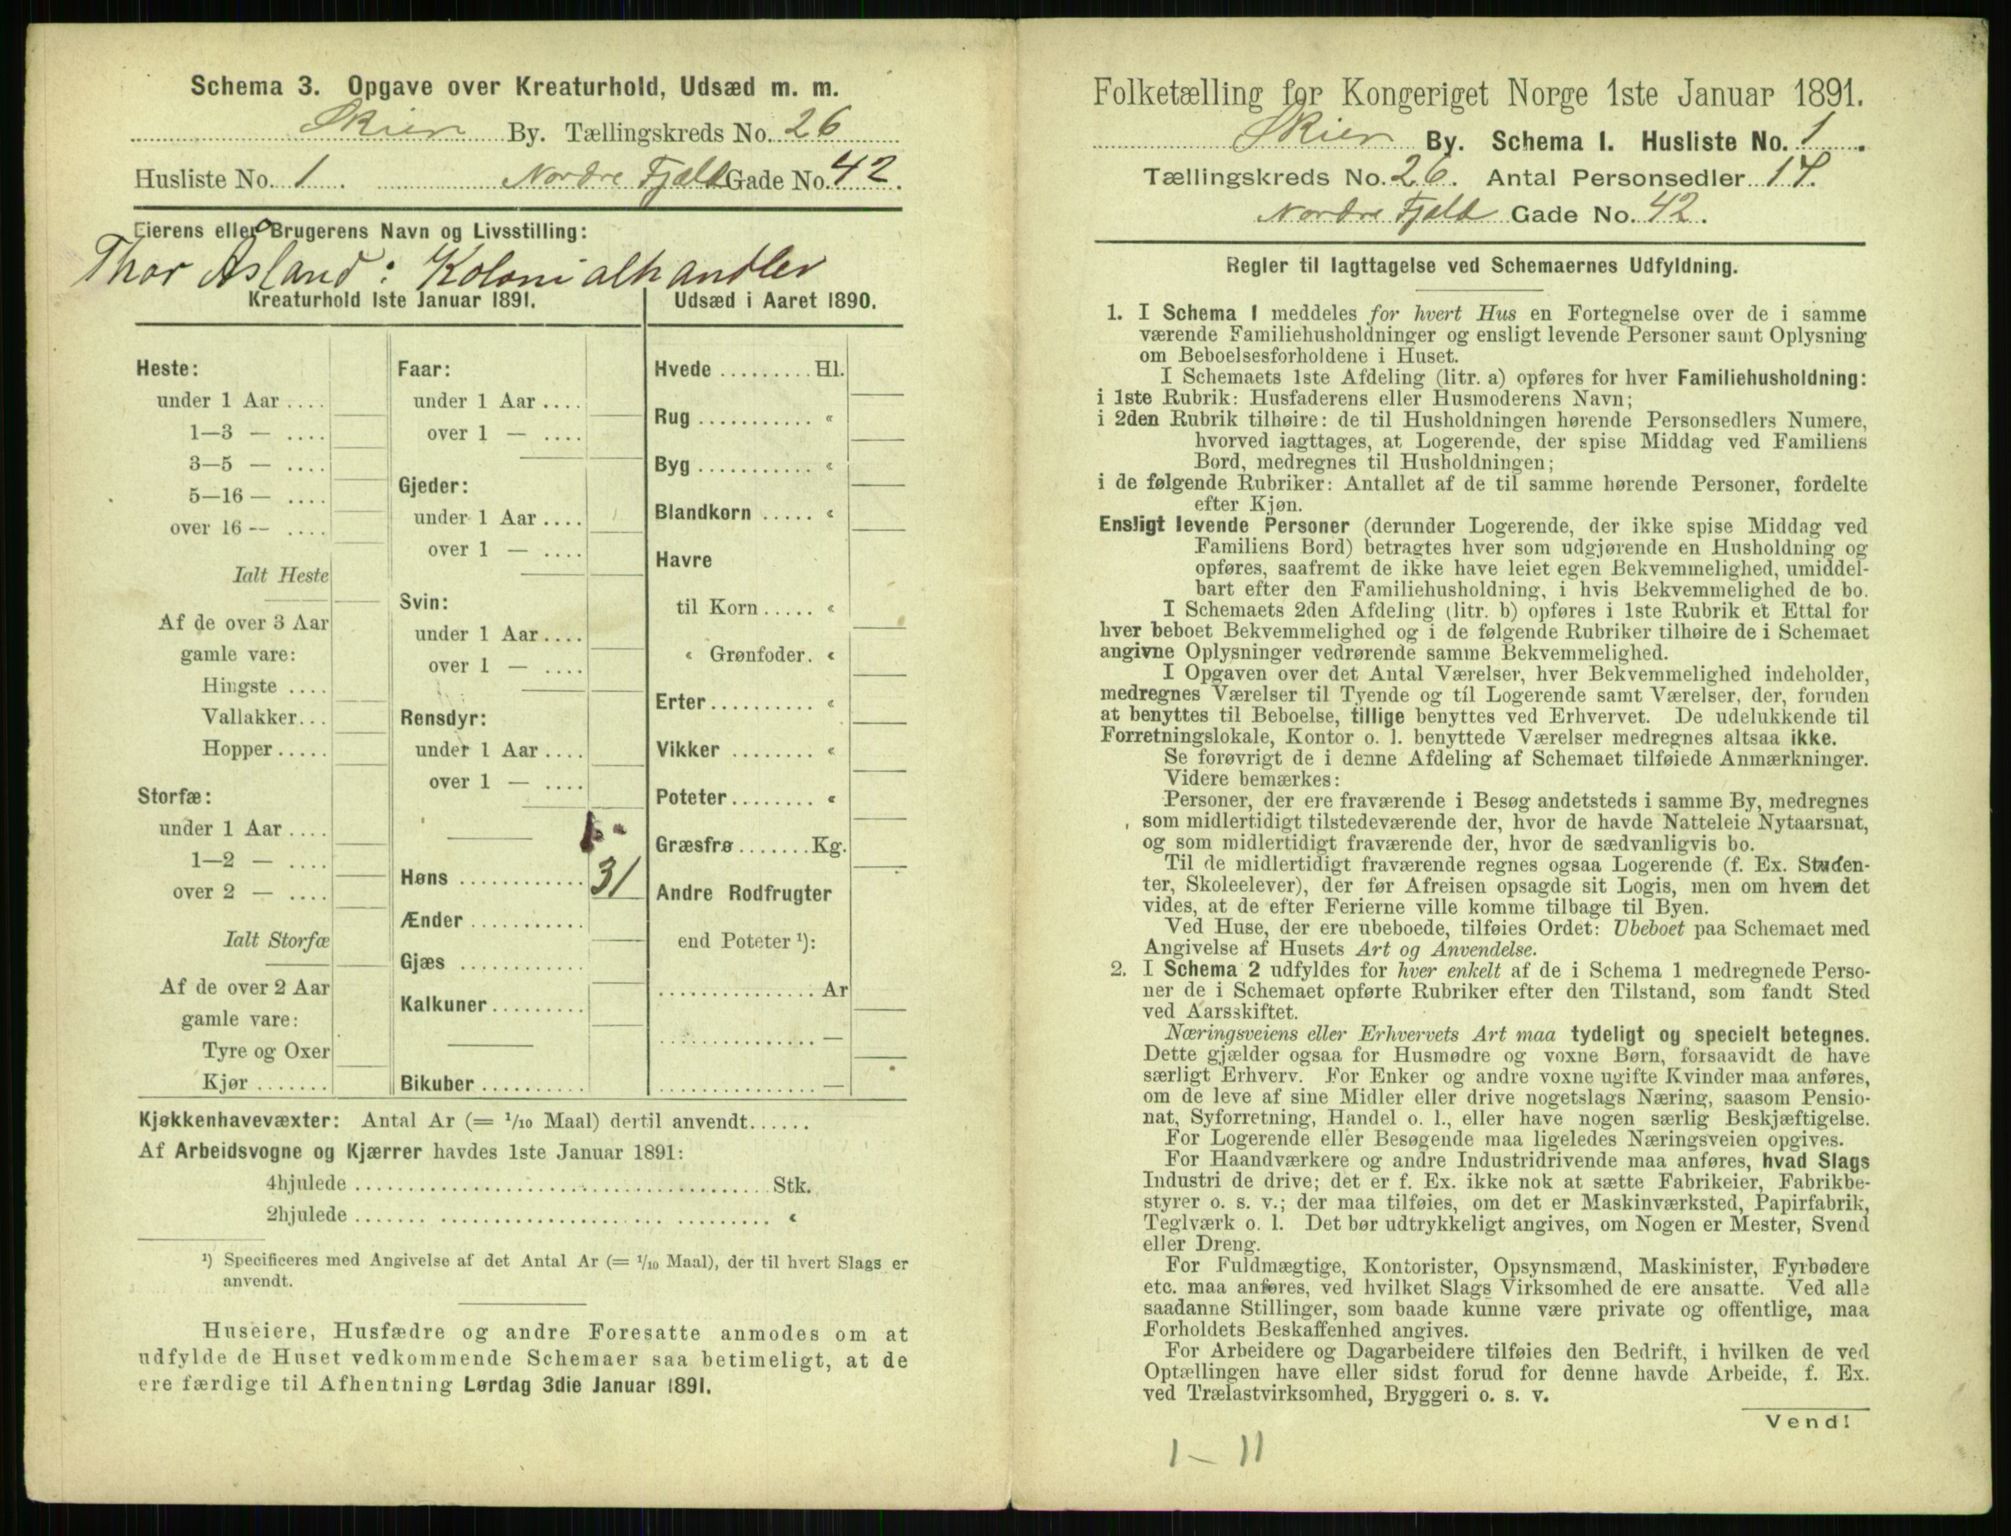 Schema 3. Opgave over Kreaturhold, Udsæd m. m.
Skien By. Tællingskreds No. 26
Husliste No. 1 Nordre Fjeld Gade No. 42.
Eierens eller Brugerens Navn og Livsstilling:
Thor Åsland: Kolonialhandler
Kreaturhold 1ste Januar 1891.
Heste:
under 1 Aar ....
1—3 — ....
3—5 — ....
5—16 — ....
over 16 — ....
Ialt Heste
Af de over 3 Aar
gamle vare:
Hingste ....
Vallakker...
Hopper .....
Storfæ:
under 1 Aar ....
1—2 — ....
over 2 — ....
Ialt Storfæ
Af de over 2 Aar
gamle vare:
Tyre og Oxer
Kjør .......
Faar:
under 1 Aar ....
over 1 — ....
Gjeder:
under 1 Aar ....
over 1 — ....
Svin:
under 1 Aar ....
over 1 — ....
Rensdyr:
under 1 Aar ....
over 1 — ....
Høns ............ 31
Ænder ...........
Gjæs ............
Kalkuner.........
Bikuber ..........
Udsæd i Aaret 1890.
Hvede ......... Hl.
Rug ........... «
Byg ........... «
Blandkorn ..... «
Havre
til Korn ..... «
« Grønfoder. «
Erter.......... «
Vikker ........ «
Poteter........ «
Græsfrø ....... Kg.
Andre Rodfrugter
end Poteter ¹):
............... Ar
............... —
............... —
Kjøkkenhavevæxter: Antal Ar (= 1/10 Maal) dertil anvendt......
Af Arbeidsvogne og Kjærrer havdes 1ste Januar 1891:
4hjulede ........................................ Stk.
2hjulede ........................................ «
¹) Specificeres med Angivelse af det Antal Ar (= 1/10 Maal), der til hvert Slags er
anvendt.
Huseiere, Husfædre og andre Foresatte anmodes om at
udfylde de Huset vedkommende Schemaer saa betimeligt, at de
ere færdige til Afhentning Lørdag 3die Januar 1891.
Folketælling for Kongeriget Norge 1ste Januar 1891.
Skien By. Schema 1. Husliste No. 1.
Tællingskreds No. 26. Antal Personsedler 17.
Nordre Fjeld Gade No. 42.
Regler til Iagttagelse ved Schemaernes Udfyldning.
1. I Schema 1 meddeles for hvert Hus en Fortegnelse over de i samme
værende Familiehusholdninger og ensligt levende Personer samt Oplysning
om Beboelsesforholdene i Huset.
I Schemaets 1ste Afdeling (litr. a) opføres for hver Familiehusholdning:
i 1ste Rubrik: Husfaderens eller Husmoderens Navn;
i 2den Rubrik tilhøire: de til Husholdningen hørende Personsedlers Numere,
hvorved iagttages, at Logerende, der spise Middag ved Familiens
Bord, medregnes til Husholdningen;
i de følgende Rubriker: Antallet af de til samme hørende Personer, fordelte
efter Kjøn.
Ensligt levende Personer (derunder Logerende, der ikke spise Middag ved
Familiens Bord) betragtes hver som udgjørende en Husholdning og
opføres, saafremt de ikke have leiet egen Bekvemmelighed, umiddel-
bart efter den Familiehusholdning, i hvis Bekvemmelighed de bo.
I Schemaets 2den Afdeling (litr. b) opføres i 1ste Rubrik et Ettal for
hver beboet Bekvemmelighed og i de følgende Rubriker tilhøire de i Schemaet
angivne Oplysninger vedrørende samme Bekvemmelighed.
I Opgaven over det Antal Værelser, hver Bekvemmelighed indeholder,
medregnes Værelser til Tyende og til Logerende samt Værelser, der, foruden
at benyttes til Beboelse, tillige benyttes ved Erhvervet. De udelukkende til
Forretningslokale, Kontor o. l. benyttede Værelser medregnes altsaa ikke.
Se forøvrigt de i denne Afdeling af Schemaet tilføiede Anmærkninger.
Videre bemærkes:
Personer, der ere fraværende i Besøg andetsteds i samme By, medregnes
som midlertidigt tilstedeværende der, hvor de havde Natteleie Nytaarsnat,
og som midlertidigt fraværende der, hvor de sædvanligvis bo.
Til de midlertidigt fraværende regnes ogsaa Logerende (f. Ex. Studen-
ter, Skoleelever), der før Afreisen opsagde sit Logis, men om hvem det
vides, at de efter Ferierne ville komme tilbage til Byen.
Ved Huse, der ere ubeboede, tilføies Ordet: Ubeboet paa Schemaet med
Angivelse af Husets Art og Anvendelse.
2. I Schema 2 udfyldes for hver enkelt af de i Schema 1 medregnede Perso-
ner de i Schemaet opførte Rubriker efter den Tilstand, som fandt Sted
ved Aarsskiftet.
Næringsveiens eller Erhvervets Art maa tydeligt og specielt betegnes.
Dette gjælder ogsaa for Husmødre og voxne Børn, forsaavidt de have
særligt Erhverv. For Enker og andre voxne ugifte Kvinder maa anføres,
om de leve af sine Midler eller drive nogetslags Næring, saasom Pensio-
nat, Syforretning, Handel o. l., eller have nogen særlig Beskjæftigelse.
For Logerende eller Besøgende maa ligeledes Næringsveien opgives.
For Haandværkere og andre Industridrivende maa anføres, hvad Slags
Industri de drive; det er f. Ex. ikke nok at sætte Fabrikeier, Fabrikbe-
styrer o. s. v.; der maa tilføies, om det er Maskinværksted, Papirfabrik,
Teglværk o. l. Det bør udtrykkeligt angives, om Nogen er Mester, Svend
eller Dreng.
For Fuldmægtige, Kontorister, Opsynsmænd, Maskinister, Fyrbødere
etc. maa anføres, ved hvilket Slags Virksomhed de ere ansatte. Ved alle
saadanne Stillinger, som baade kunne være private og offentlige, maa
Forholdets Beskaffenhed angives.
For Arbeidere og Dagarbeidere tilføies den Bedrift, i hvilken de ved
Optællingen have eller sidst forud for denne havde Arbeide, f. Ex.
ved Trælastvirksomhed, Bryggeri o. s. v.
Vend!
1 – 11